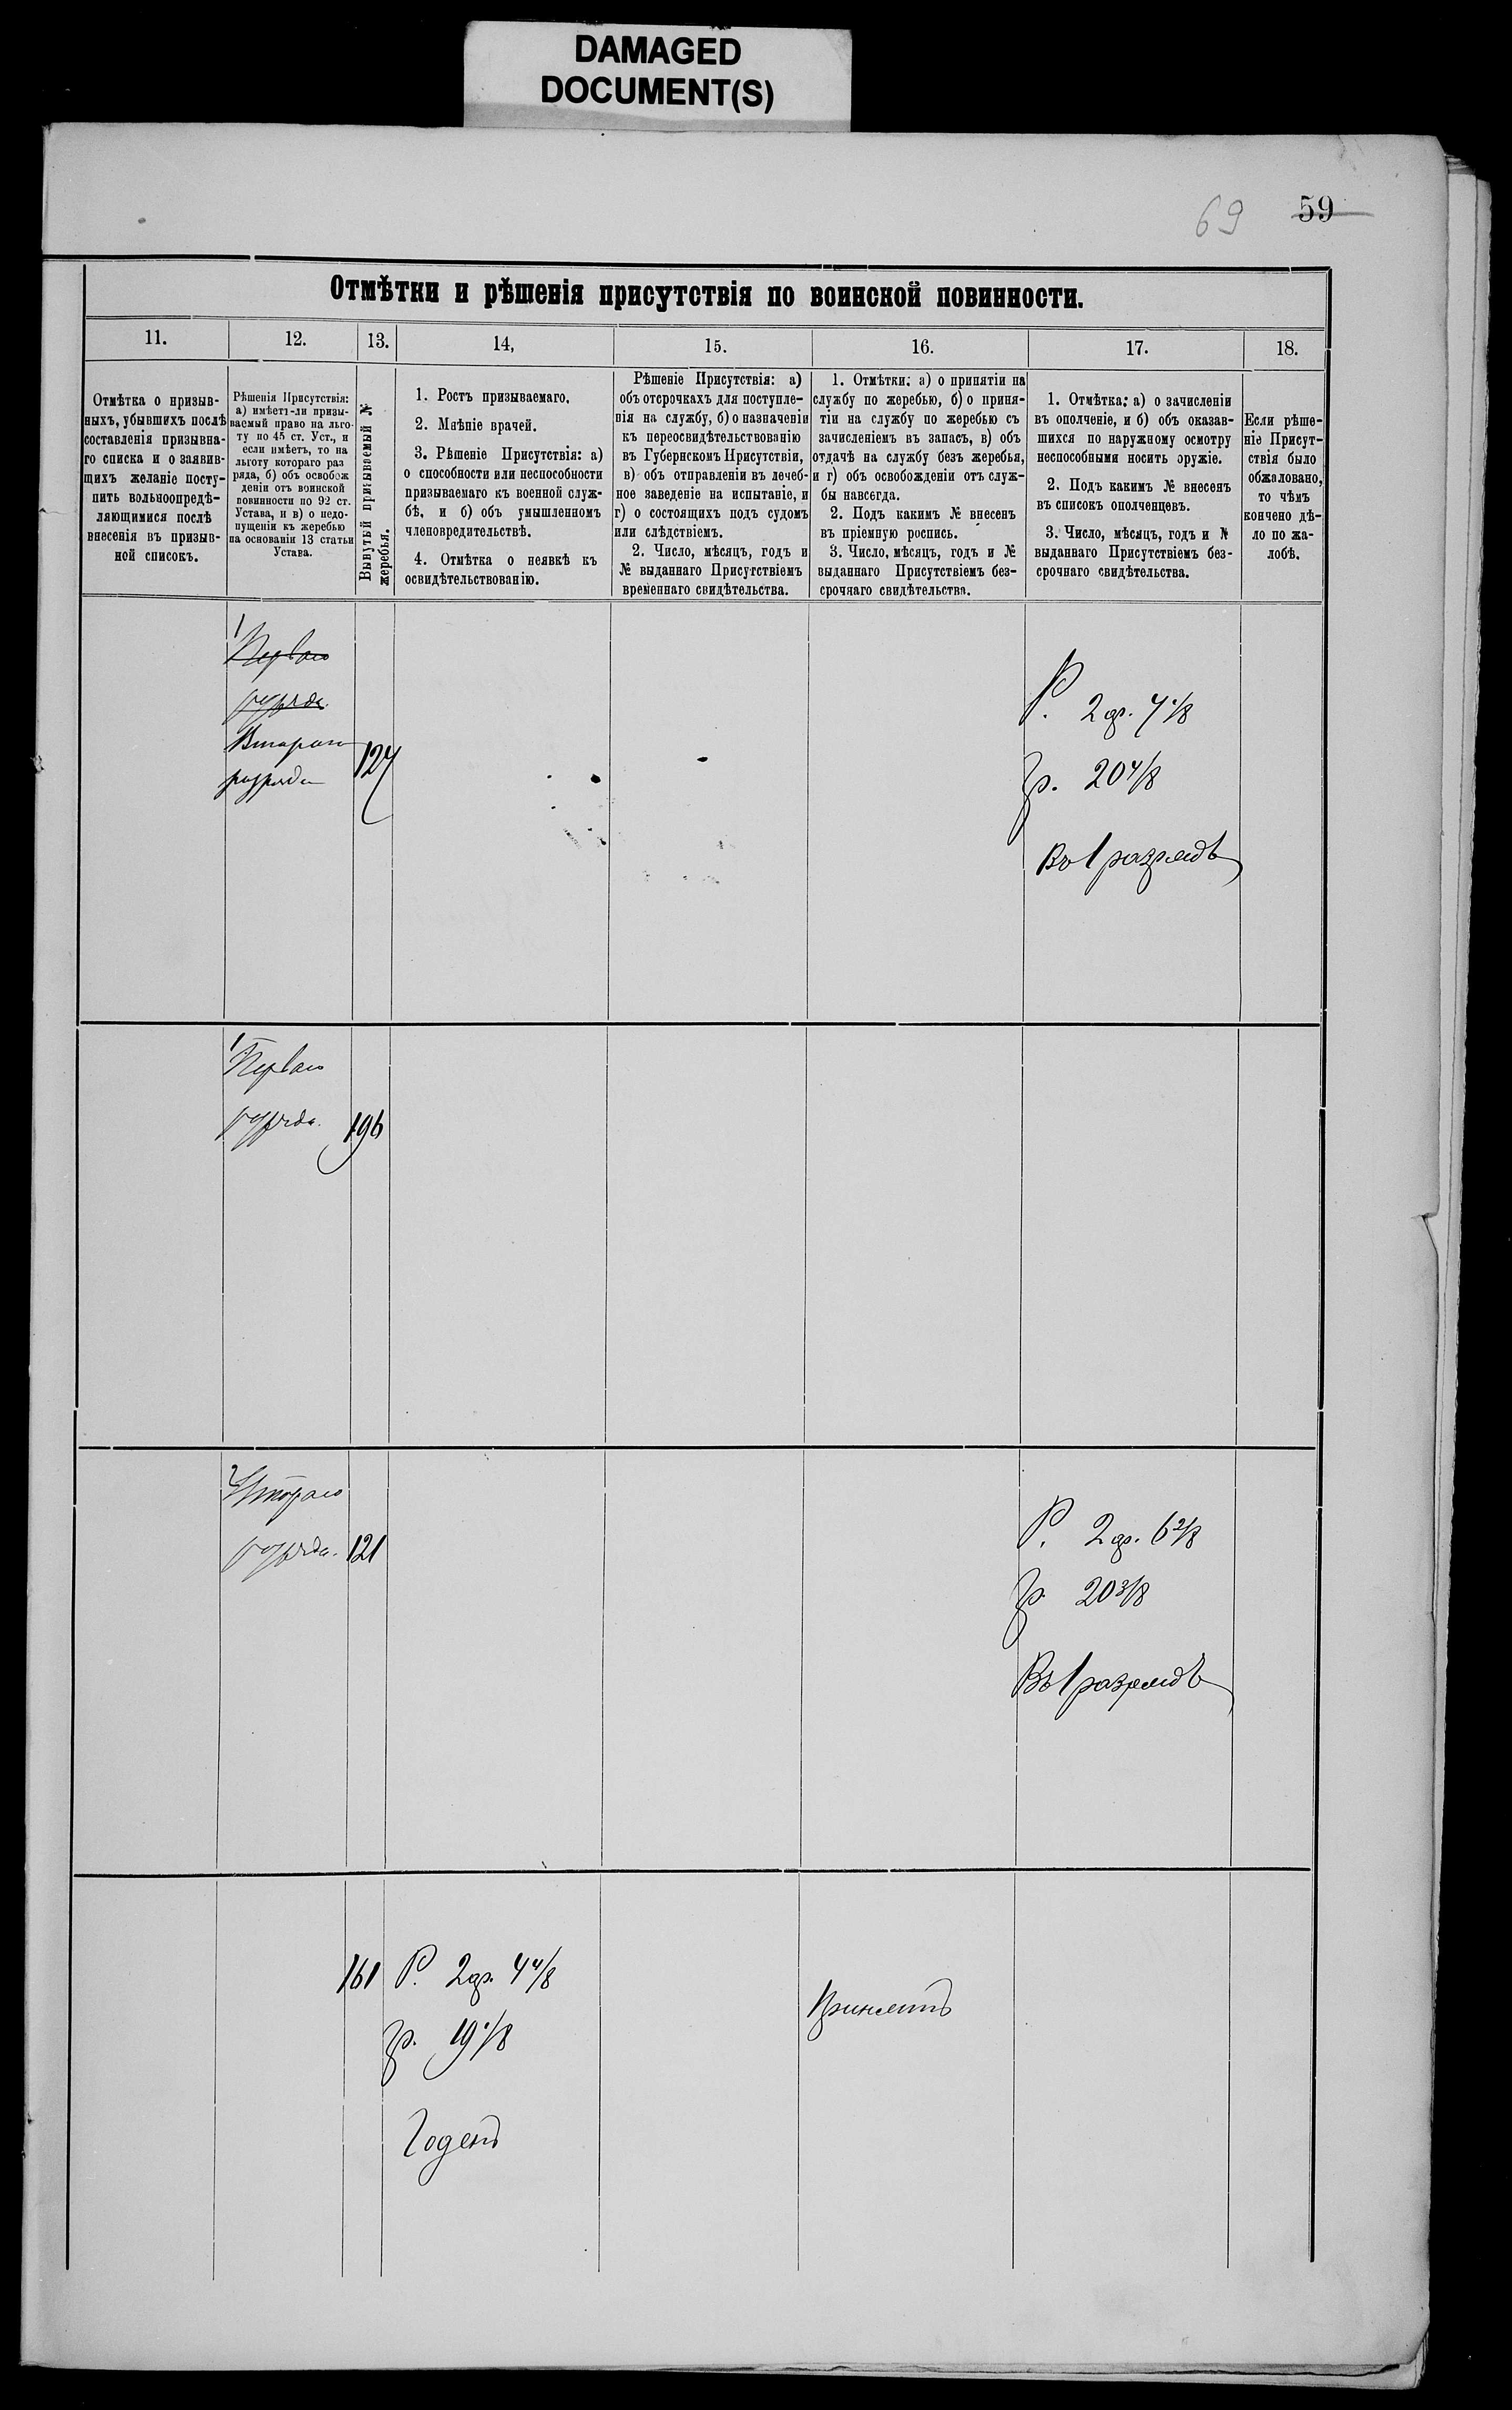 DAMAGED
DOCUMENT(S)
69 59
Отмѣтки и рѣшенія присутствія по воинской повинности.
11. 12. 13. 14, 15. 16. 17. 18.
Отмѣтка о призыв-
ныхъ, убывшихъ послѣ
составленія призывна-
го списка и о заявив-
щихъ желаніе посту-
пить вольноопредѣ-
ляющимися послѣ
внесенія въ призыв-
ной списокъ.
Рѣшенія Присутствія:
а) имѣетъ-ли призы-
ваемый право на льго-
ту по 45 ст. Уст., и
если имѣетъ, то на
льготу котораго раз
ряда, б) объ освобож
деніи отъ воинской
повинности по 92 ст.
Устава, и в) о недо-
пущеніи къ жеребью
на основаніи 13 статьи
Устава.
Вынутый призываемый №
жеребья.
1. Ростъ призываемаго.
2. Мнѣніе врачей.
3. Рѣшеніе Присутствія: а)
о способности или неспособности
призываемаго къ военной служ-
бѣ, и б) объ умышленномъ
членовредительствѣ.
4. Отмѣтка о неявкѣ къ
освидѣтельствованію.
Рѣшеніе Присутствія: а)
объ отсрочкахъ для поступле-
нія на службу, б) о назначеніи
къ переосвидѣтельствованію
въ Губернскомъ Присутствіи,
в) объ отправленіи въ лечеб-
ное заведеніе на испытаніе, и
г) о состоящихъ подъ судомъ
или слѣдствіемъ.
2. Число, мѣсяцъ, годъ и
№ выданнаго Присутствіемъ
временнаго свидѣтельства.
1. Отмѣтки: а) о принятіи на
службу по жеребью, б) о приня-
тіи на службу по жеребью съ
зачисленіемъ въ запасъ, в) объ
отдачѣ на службу безъ жеребья,
и г) объ освобожденіи отъ служ-
бы навсегда.
2. Подъ какимъ № внесенъ
въ пріемную роспись.
3. Число, мѣсяцъ, годъ и №
выданнаго Присутствіемъ без-
срочнаго свидѣтельства.
1. Отмѣтка: а) о зачисленіи
въ ополченіе, и б) объ оказав-
шихся по наружному осмотру
неспособными носить оружіе.
2. Подъ какимъ № внесенъ
въ списокъ ополченцевъ.
3. Число, мѣсяцъ, годъ и №
выданнаго Присутствіемъ без-
срочнаго свидѣтельства.
Если рѣше-
ніе Присут-
ствія было
обжаловано,
то чѣмъ
кончено дѣ-
ло по жа-
лобѣ.
1
Перваго
разряда.
Втораго
разряда
127
Р. 2 ар. 7 1/8
гр. 20 4/8
Въ 1 разрядъ
1
Перваго
разряда.
196
2
Втораго
разряда.
121
Р. 2 ар. 6 2/8
гр. 20 3/8
Въ 1 разрядъ
161
Р. 2 ар. 4 4/8
гр. 19 1/8
Годенъ
Принятъ